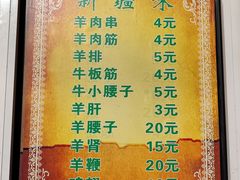 新疆
羊肉串 4元
羊肉筋 4元
羊排 5元
牛板筋 4元
牛小腰子 5元
羊肝 3元
羊腰子 20元
羊肾 15元
羊鞭 20元